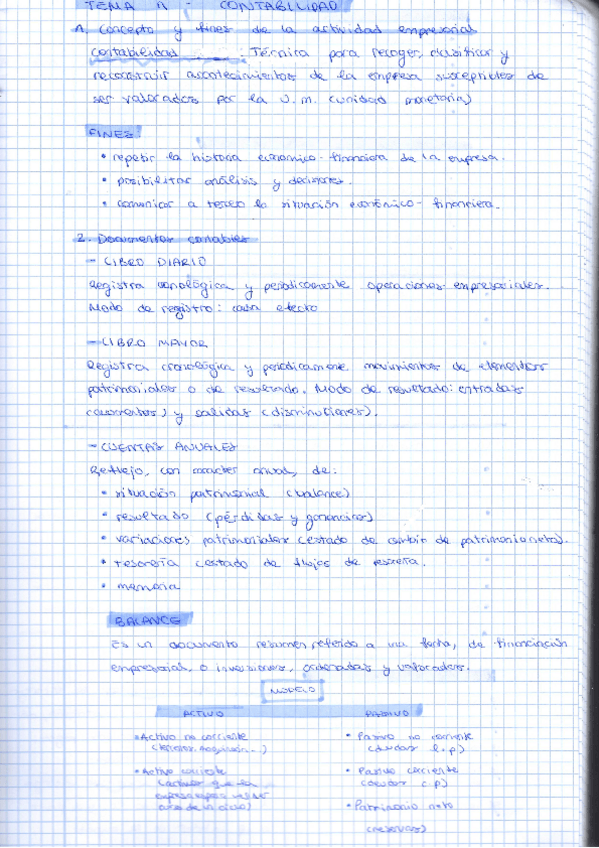 TEMA 11 - CONTABILIDAD
1. Concepto y fines de la actividad empresarial
Contabilidad : Técnica para recoger, clasificar y
reconstruir acontecimientos de la empresa susceptibles de
ser valorados por la U.M. (unidad monetaria)
FINES:
• repetir la historia económico-financiera de la empresa.
• posibilitar análisis y decisiones.
• comunicar a tercero la situación económico-financiera.
2. Documentos contables
- LIBRO DIARIO
Registra cronológica y periódicamente operaciones empresariales.
Modo de registro: causa efecto
- LIBRO MAYOR
Registra cronológica y periódicamente movimientos de elementos
patrimoniales o de resultado. Modo de resultado: entradas
(aumentos) y salidas (disminuciones).
- CUENTAS ANUALES
Reflejo, con carácter anual, de:
• situación patrimonial (balance)
• resultado (pérdidas y ganancias)
• variaciones patrimoniales (estado de cambio de patrimonio neto).
• tesorería (estado de flujos de tesorería.
• memoria
BALANCE
Es un documento resumen, referido a una fecha, de financiación
empresarial, o inversiones, ordenadas y valoradas.
MODELO
ACTIVO PASIVO
• Activo no corriente
(terrenos, maquinaria...)
• Activo corriente
(activos que la
empresa espera
• Pasivo no corriente
(deudas l.p)
• Pasivo corriente
(deudas c p)
• Patrimonio neto
(reservas)